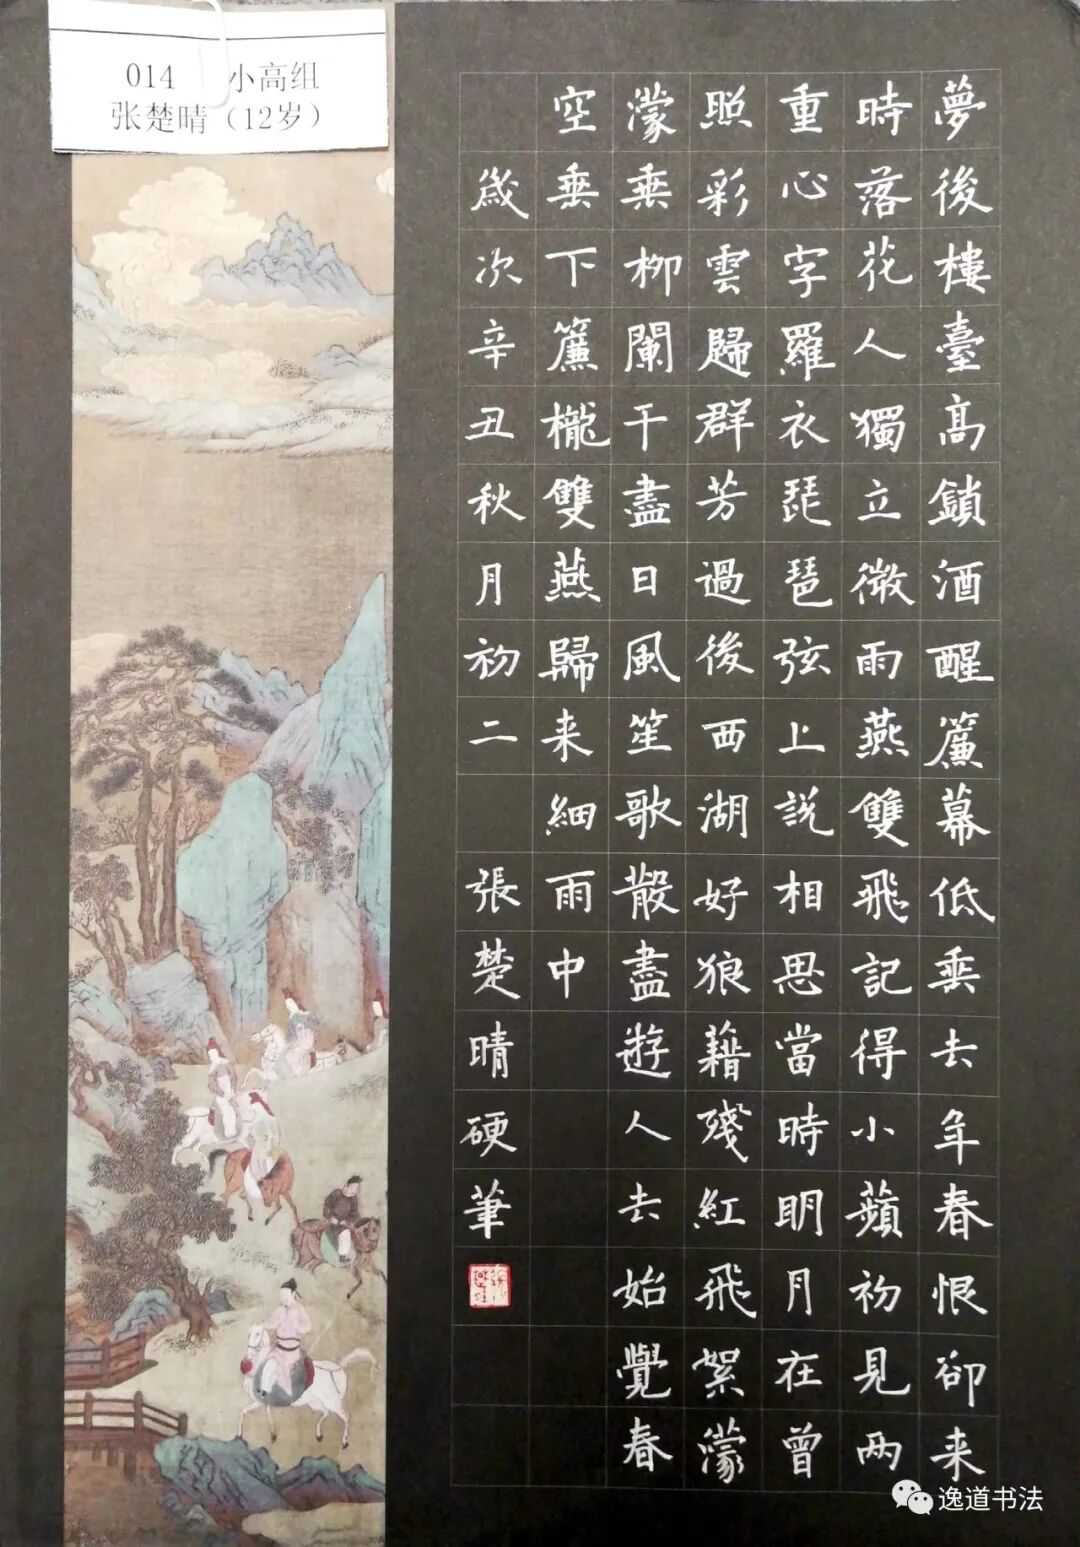 014 小高组
张楚晴（12岁）
夢後樓臺高鎖酒醒簾幕低垂去年春恨卻来
時落花人獨立微雨燕雙飛記得小蘋初見兩
重心字羅衣琵琶弦上説相思當時明月在曾
照彩雲歸群芳過後西湖好狼藉殘紅飛絮濛
濛垂柳闌干盡日風笙歌散盡遊人去始覺春
空垂下簾櫳雙燕歸来細雨中
歲次辛丑秋月初二 張楚晴硬筆
逸道书法